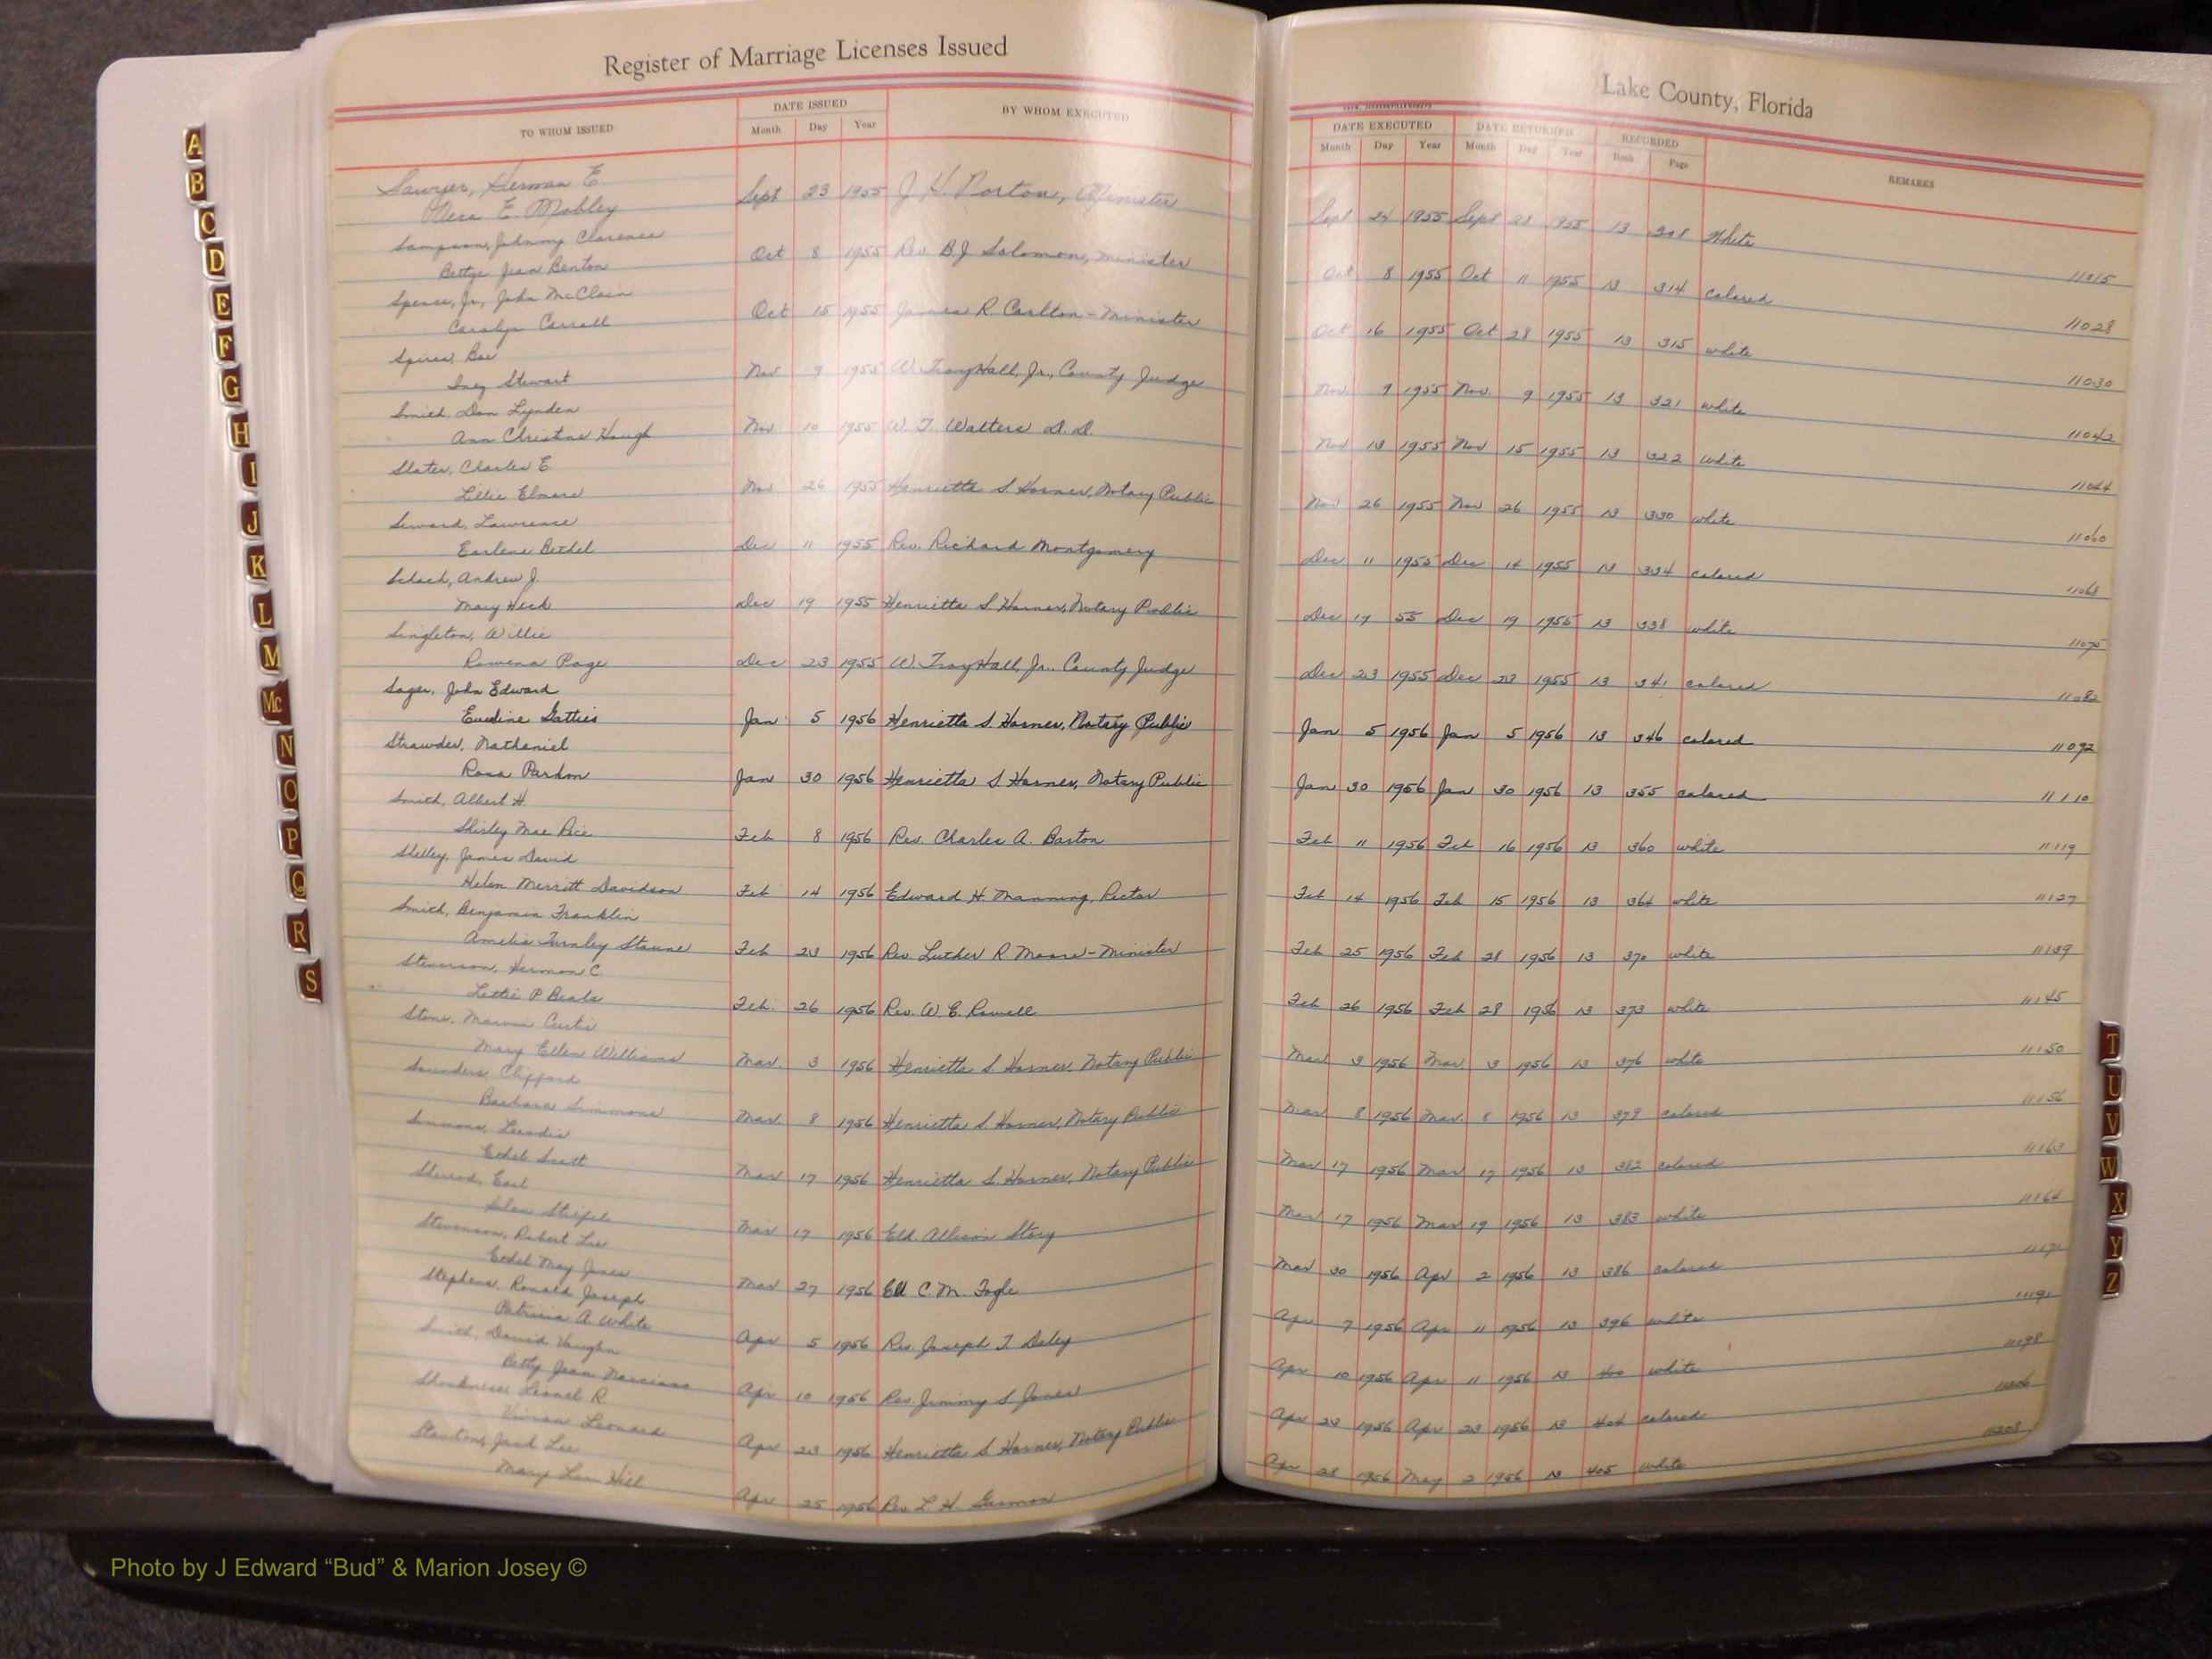 Register of Marriage Licenses Issued
Lake County, Florida
TO WHOM ISSUED
DATE ISSUED
Month Day Year
BY WHOM EXECUTED
DATE EXECUTED
Month Day Year
DATE RETURNED
Month Day Year
RECORDED
Book Page
REMARKS
Sawyer, Herman E.
Vera E. Mobley Sept 23 1955 J. H. Norton, Minister Sept 24 1955 Sept 28 1955 13 308 White 11015
Sampson, Johnny Clarence
Bettye Jean Benton Oct 8 1955 Rev. B.J. Solomon, minister Oct 8 1955 Oct 11 1955 13 314 colored 11028
Spence, Jr., John McClain
Carolyn Carroll Oct 15 1955 James R Carlton - Minister Oct 16 1955 Oct 28 1955 13 315 white 11030
Spires,
Inez Stewart Nov. 9 1955 W. Troy Hall, Jr., County Judge Nov. 9 1955 Nov. 9 1955 13 321 white 11042
Smith, Don Lynden
Ann Christine Hough Nov. 10 1955 W. T. Walters D.D. Nov 13 1955 Nov 15 1955 13 322 white 11044
Slater, Charles E.
Lillie Elmore Nov 26 1955 Henrietta S. Horner, Notary Public Nov 26 1955 Nov 26 1955 13 330 white 11060
Seward, Lawrence
Earlene Bethel Dec 11 1955 Rev. Richard Montgomery Dec 11 1955 Dec 14 1955 13 334 colored 11068
Schach, Andrew J.
Mary Heck Dec 19 1955 Henrietta S. Horner, Notary Public Dec 19 55 Dec 19 1955 13 338 white 11075
Singleton, Willie
Rowena Page Dec 23 1955 W. Troy Hall, Jr., County Judge Dec 23 1955 Dec 23 1955 13 341 colored 11082
Sager, John Edward
Gatties Jan 5 1956 Henrietta S. Horner, Notary Public Jan 5 1956 Jan 5 1956 13 346 colored 11092
Strawder, Nathaniel
Rosa Jan 30 1956 Henrietta S Horner, Notary Public Jan 30 1956 Jan 30 1956 13 355 colored 11110
Smith, Albert H.
Shirley Mae Rice Feb 8 1956 Rev. Charles A. Barton Feb 11 1956 Feb 16 1956 13 360 white 11119
Shelley, James David
Helen Merritt Davidson Feb 14 1956 Edward H. Manning, Rector Feb 14 1956 Feb 15 1956 13 364 white 11127
Smith, Benjamin Franklin
Amelia Turnley Feb 23 1956 Rev. Luther R. Moore - Minister Feb 25 1956 Feb 28 1956 13 370 white 11139
Steverson, Hermon C.
P. Beals Feb. 26 1956 Rev. W. E. Rowell Feb 26 1956 Feb 28 1956 13 373 white 11145
Stone, Marvin Curtis
Mary Ellen Williams Mar. 3 1956 Henrietta S. Horner, Notary Public Mar 3 1956 Mar. 3 1956 13 376 white 11150
Saunders, Clifford
Barbara Simmons Mar. 8 1956 Henrietta S. Horner, Notary Public Mar 8 1956 Mar. 8 1956 13 379 colored 11156
Simmons,
Ethel Scott Mar 17 1956 Henrietta S. Horner, Notary Public Mar 17 1956 Mar 17 1956 13 382 colored 11163
Sherrod, Earl
Helen Mar 17 1956 Eld. Allison Story Mar 17 1956 Mar 19 1956 13 383 white 11164
Stevenson, Robert Lee
Ethel May Jones Mar 27 1956 Eld C. M. Fogle Mar 30 1956 Apr 2 1956 13 386 colored 11171
Stephens, Ronald Joseph
Patricia A. White Apr 5 1956 Rev. Joseph T. Daley Apr 7 1956 Apr 11 1956 13 396 white 11191
Smith, David Vaughn
Betty Jean Narcisso Apr 10 1956 Rev. Jimmy S. Jones Apr 10 1956 Apr 11 1956 13 400 white 11198
Shockness Lionel R
Vivian Leonard Apr 23 1956 Henrietta S Horner, Notary Public Apr 23 1956 Apr 23 1956 13 404 colored 11206
Stanton, Jack Lee
Mary Lou Hill Apr 25 1956 Rev. L. H. Garmon Apr 28 1956 May 2 1956 13 405 white 11208
A
B
C
D
E
F
G
H
I
J
K
L
M
Mc
N
O
P
Q
R
S
T
U
V
W
X
Y
Z
Photo by J Edward “Bud” & Marion Josey ©